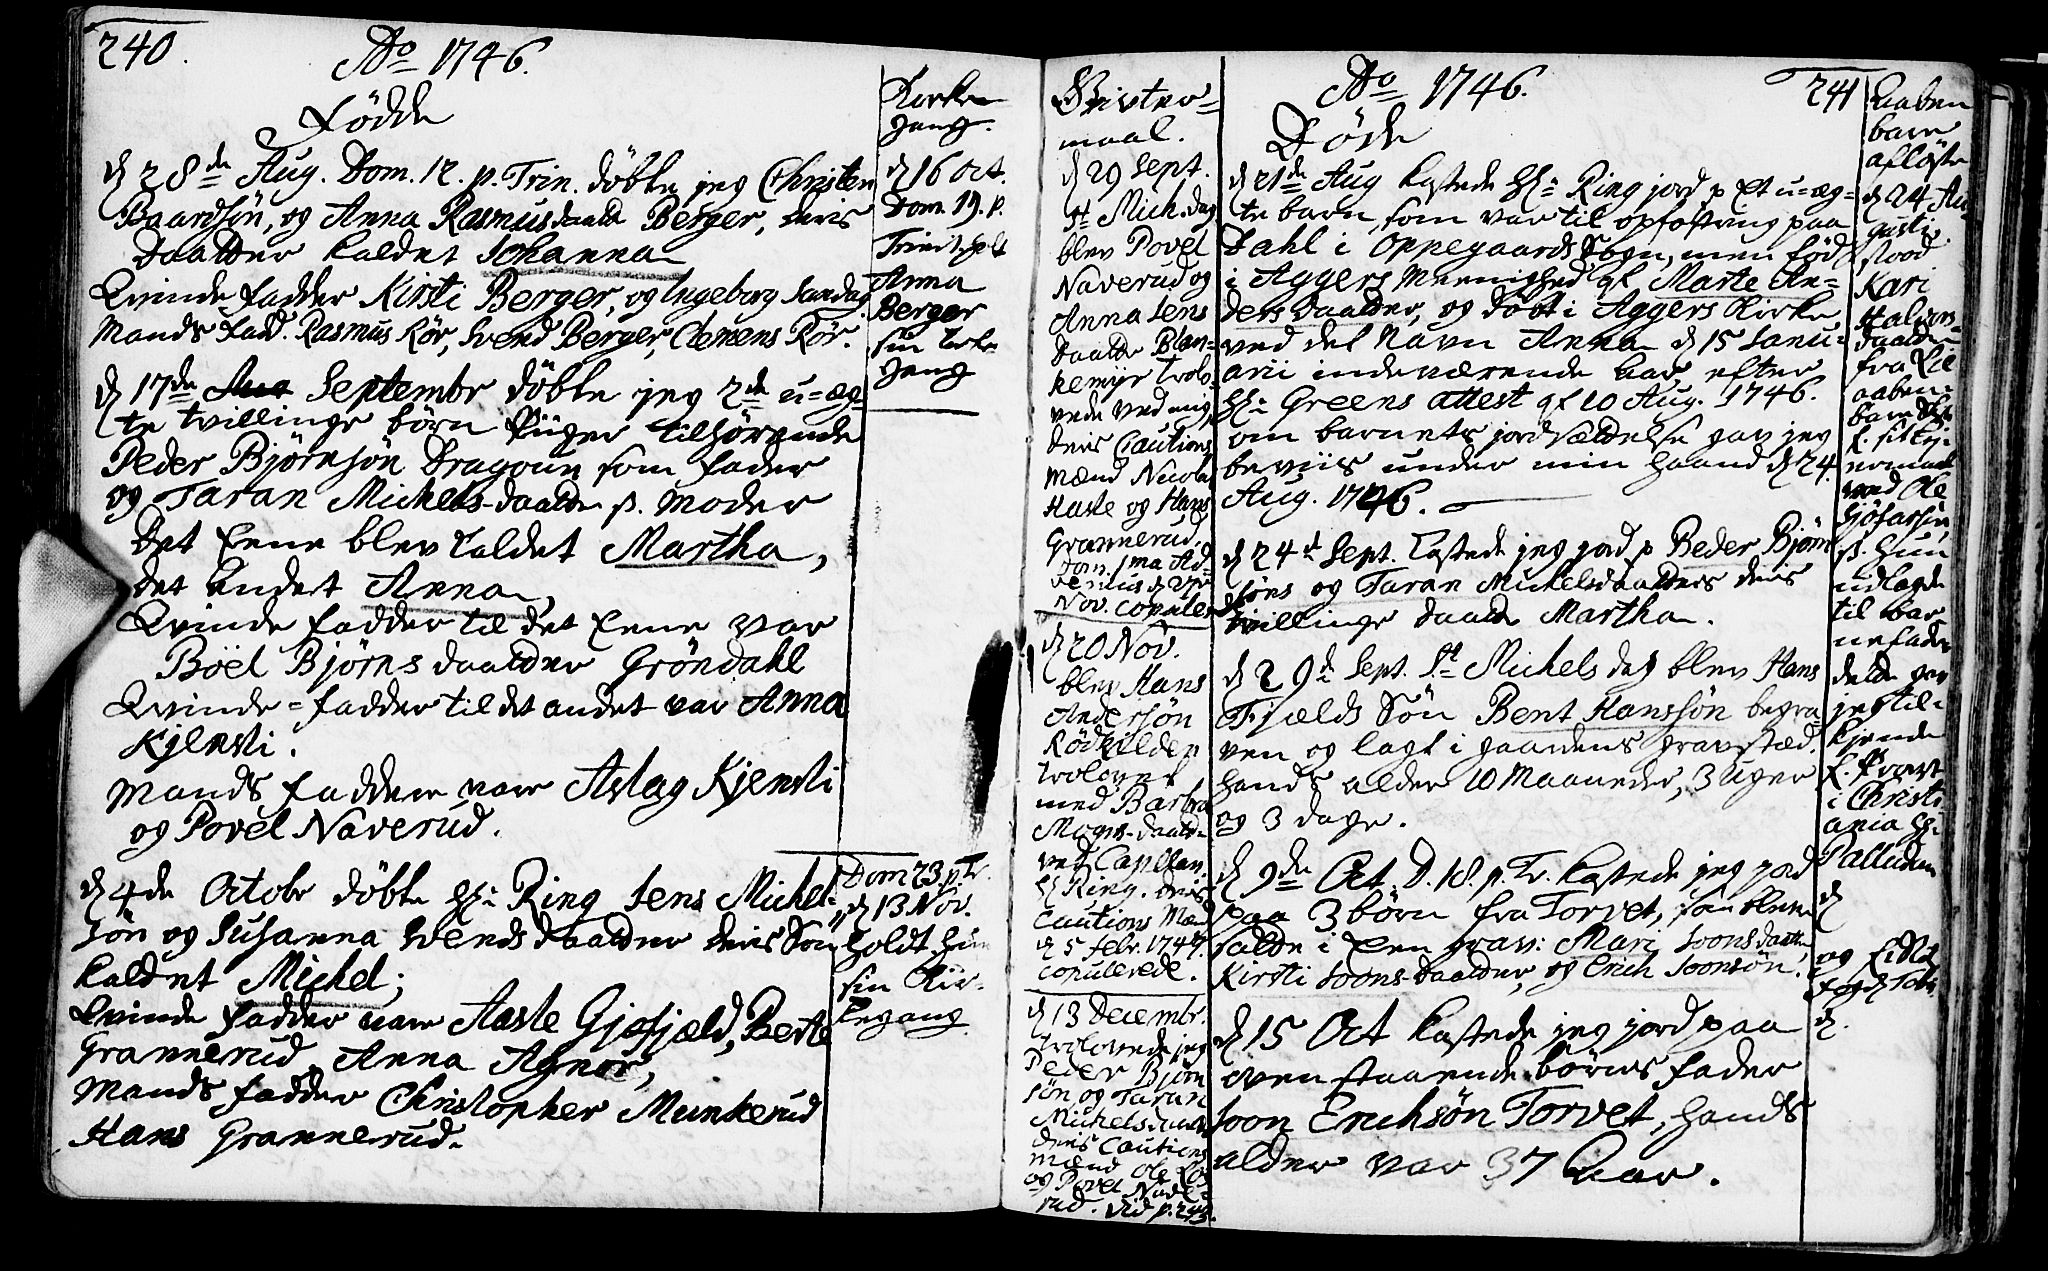 240.
Ao 1746.
Födde
d 28de Aug. Dom. 12. p. Trin. döbte jeg Christen
Baardsön, og Anna Rasmusdaatter Berger, deris
daatter kaldet Johanna
Kvinde fadder Kirsti Berger, og Ingeborg Sandag
Mands fadd. Rasmus Rör, Svend Berger, Clemens Rör.
d 17de Aug Septembr döbte jeg 2de u-æg-
te tvillinge börn Piiger tilhörende
Peder Björnsön Dragoun som fader
og Taran Michels-daatter s. moder
Det Eene blev kaldet Martha,
det Andet Anna,
Kvinde fadder til det Eene var
Böel Björns daatter Gröndahl
Kvinde-fadder til det andet var Anna
Kjensti.
Mands faddere vare Aslag Kjensti
og Povel Naverud.
d 4de Octobr döbte Hr. Ring Jens Michel-
sön og Susanna Svends daatter deris Sön
kaldet Michel;
Kvinde fadder vare Aaste Gjefjeld, Berte
Grannerud, Anna Agnor,
Mands fadder Christopher Munkerud
Hans Grannerud.
Kirke
gang.
d 16 Oct.
Dom. 19. p.
Trinit. holt
Anna
Berger
sin kirke
gang
Dom 23 p. Tr.
d 13 Nov.
holdt hun
sin Kir-
kegang
Givter-
maal.
d 29 Sept.
St Mich. dag
blev Povel
Naverud og
Anna Jens
daatter Blan-
kemyr trolo-
vede ved mig,
deris Cautions
mænd Nicolai
Haste og Hans
Grannerud.
Dom. 1ma Ad-
ventus d 27de
Nov. copuler
d 20 Nov.
blev Hans
Andersön
Rödkilden
trolovet
med Barbra
Mogns-daatter
ved Capellan.
Hr Ring. deris
Cautions Mænd
d 5 Febr. 1747.
copulerede.
d 13 Decembr.
trolovede jeg
Peder Björn
sön og Taran
Michelsdaatter
deris Cautions
mænd Ole
og Povel Nave-
rud. vid p. 243.
Ao 1746.
241
Döde
d 21de Aug kastede Hr. Ring jord p Et u-æg-
te barn, som var til opfostring paa
Dahl i Oppegaards Sogn, men föd
i Aggers Meenighed af Marte An-
ders daatter, og döbt i Aggers Kirke
ved det Navn Anna d 15 Janu-
arii indeværende aar efter
Hr: Greens attest af 20 Aug. 1746.
om barnets jordfæstelse gav jeg
beviis under min haand d 24.
Aug. 1746.
d 24d Sept. kastede jeg jord p Peder Björn
söns og Taran Michelsdaatters deris
tvillinge daatter Martha.
d 29d Sept. St Michels dag blev Hans
Fjælds Sön Bent Hanssön begra
ven og lagt i gaardens gravstæd.
hands alder 10 Maaneder, 3 uger
og 3 dage.
d 9de Oct. D. 18. p. Tr. kastede jeg jord
paa 3 börn fra Torvet, som bleve
satte i Een grav: Mari Joonsdaatter
Kirsti Joons-daatter, og Erich Joonsön.
d 15 Oct kastede jeg jord paa
ovenstaaende börns fader
Joon Erichsön Torvet, hands
alder var 37 Aar.
Aaben
bare
aflöste
d 24 Au-
gusti
stood
Kari
Halvors-
daatter
fra Lie
aaben-
bare Skr.
f. sit lej-
ermaal
med Ole
s. hun
udlagde
til bar-
nefader
dette gav
jeg til-
kjende
f. Provst
i Christi
ania Hr.
Palludan
d
og
d.